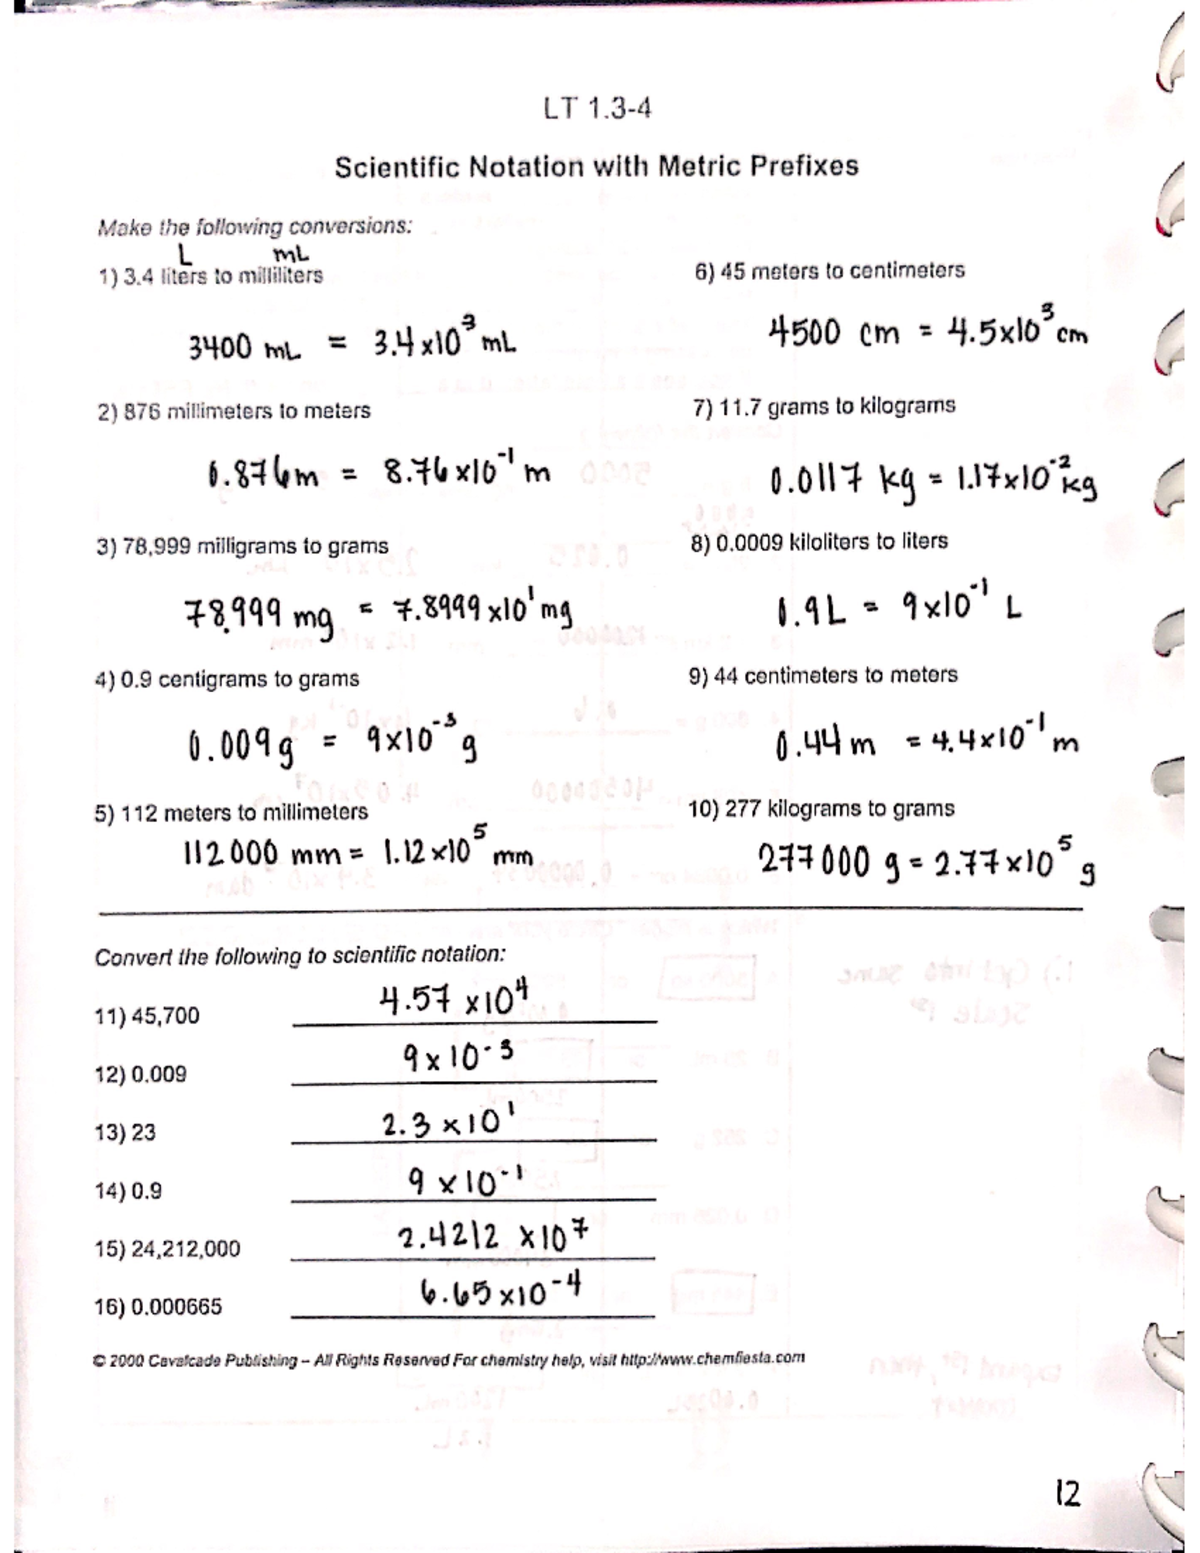 LT 1.3-4
Scientific Notation with Metric Prefixes
Make the following conversions:
L mL
1) 3.4 liters to milliliters
3400 mL = 3.4x10³ mL
2) 876 millimeters to meters
0.876m = 8.76x10⁻¹ m
3) 78,999 milligrams to grams
78.999 mg = 7.8999x10¹ mg
4) 0.9 centigrams to grams
0.009g = 9x10⁻³ g
5) 112 meters to millimeters
112000 mm = 1.12x10⁵ mm
6) 45 meters to centimeters
4500 cm = 4.5x10³ cm
7) 11.7 grams to kilograms
0.0117 kg = 1.17x10⁻² kg
8) 0.0009 kiloliters to liters
0.9L = 9x10⁻¹ L
9) 44 centimeters to meters
0.44m = 4.4x10⁻¹ m
10) 277 kilograms to grams
277000 g = 2.77x10⁵ g
Convert the following to scientific notation:
11) 45,700 4.57 x10⁴
12) 0.009 9x10⁻³
13) 23 2.3 x10¹
14) 0.9 9 x10⁻¹
15) 24,212,000 2.4212 x10⁷
16) 0.000665 6.65x10⁻⁴
© 2000 Cavalcade Publishing – All Rights Reserved For chemistry help, visit http://www.chemfiesta.com
12